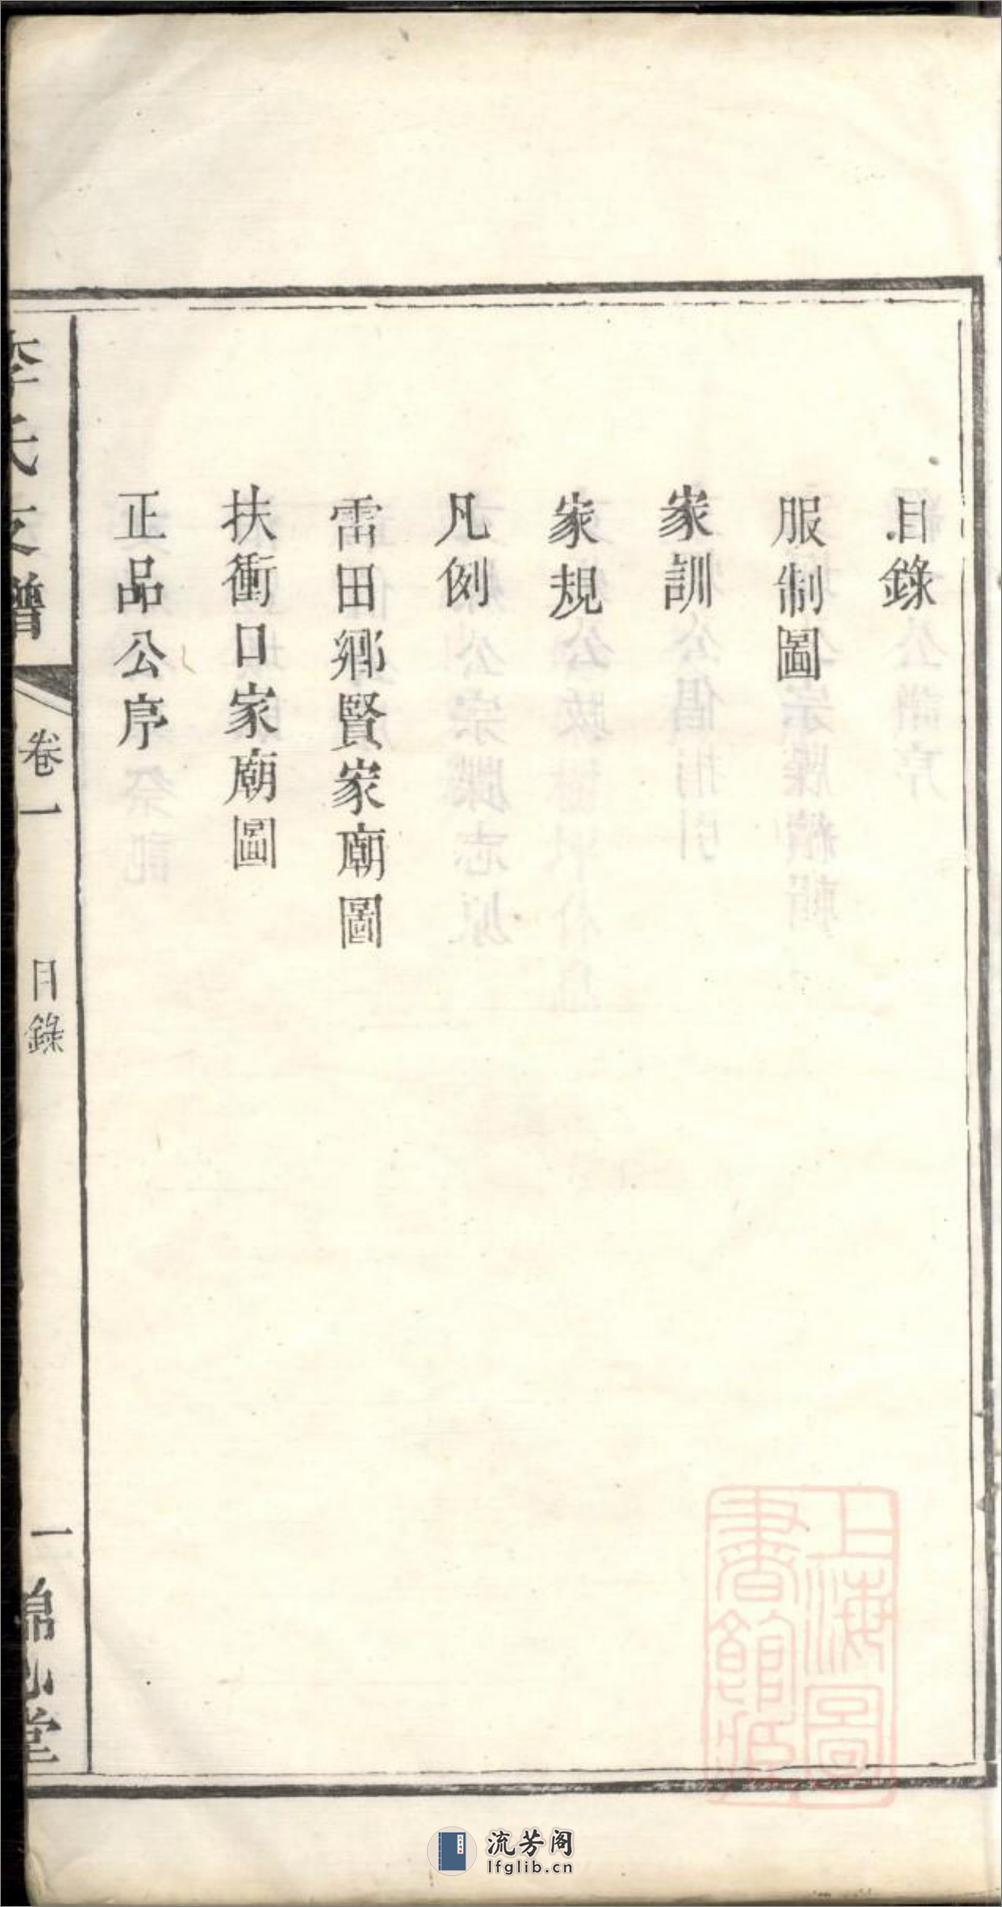 目錄
服制圖
家訓
家規
凡例
雷田鄉賢家廟圖
扶衝口家廟圖
正品公序
李氏支譜
卷一
目錄
一
堂
上海圖
書館藏
流芳阁
lfglib.cn